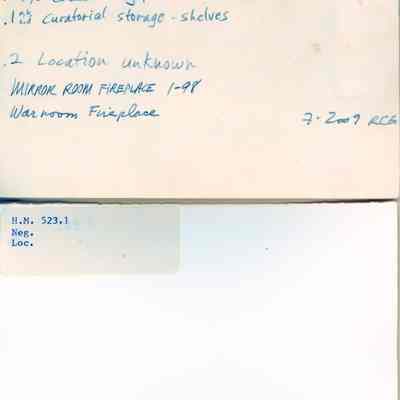 Curatorial storage - shelves
.2 Location unknown
MIRROR ROOM FIREPLACE 1-98
War room Fireplace
7-2009 RCG
H.M. 523.1
Neg.
Loc.